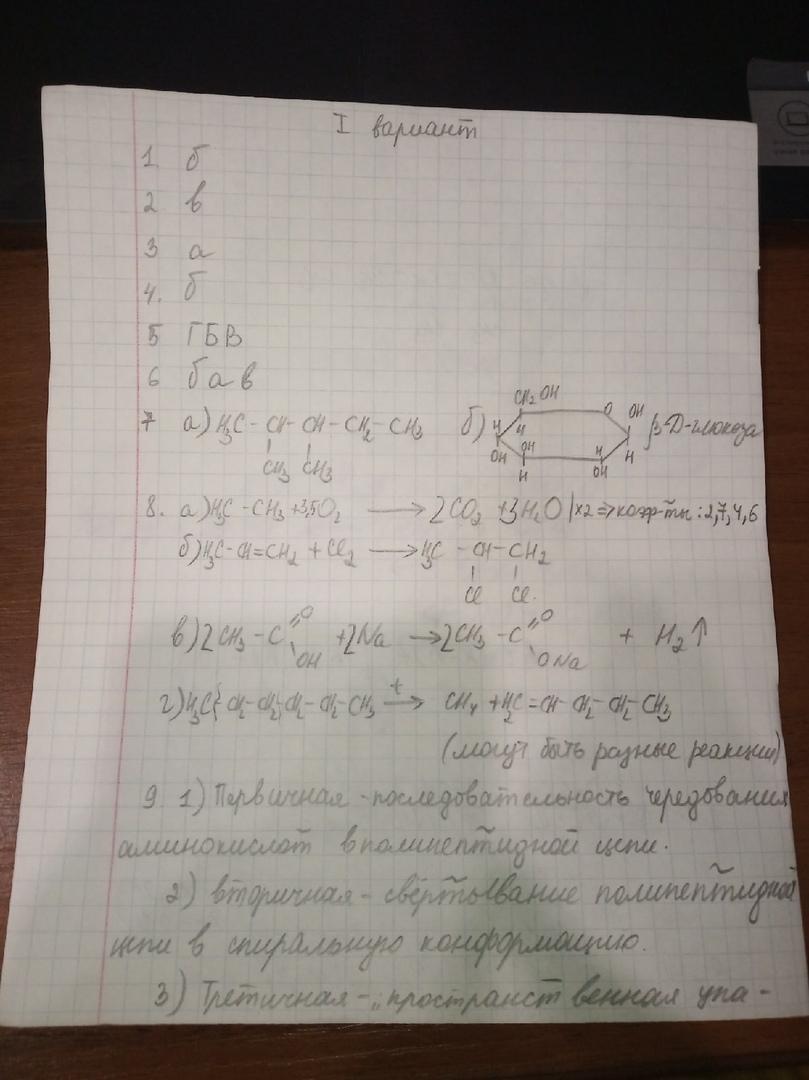 I вариант
1 б
2 в
3 а
4. б
5 ГБВ
6 б а в
7 а) H3C - CH - CH - CH2 - CH3 б) β-D-глюкоза
CH3 CH3
CH2OH O OH H H OH OH H H OH H
8. а) H3C - CH3 + 3,5O2 → 2CO2 + 3H2O | x2 => коэф-ты: 2,7,4,6
б) H3C - CH = CH2 + Cl2 → H3C - CH - CH2
Cl Cl.
в) 2CH3 - C =O OH + 2Na → 2CH3 - C =O ONa + H2↑
г) H3C { CH2 - CH2 } CH2 - CH2 - CH3 t → CH4 + H2C = CH - CH2 - CH2 - CH3
(могут быть разные реакции)
9. 1) Первичная - последовательность чередования
аминокислот в полипептидной цепи.
2) вторичная - свёртывание полипептидной
цепи в спиральную конформацию.
3) Третичная - „пространственная упа-